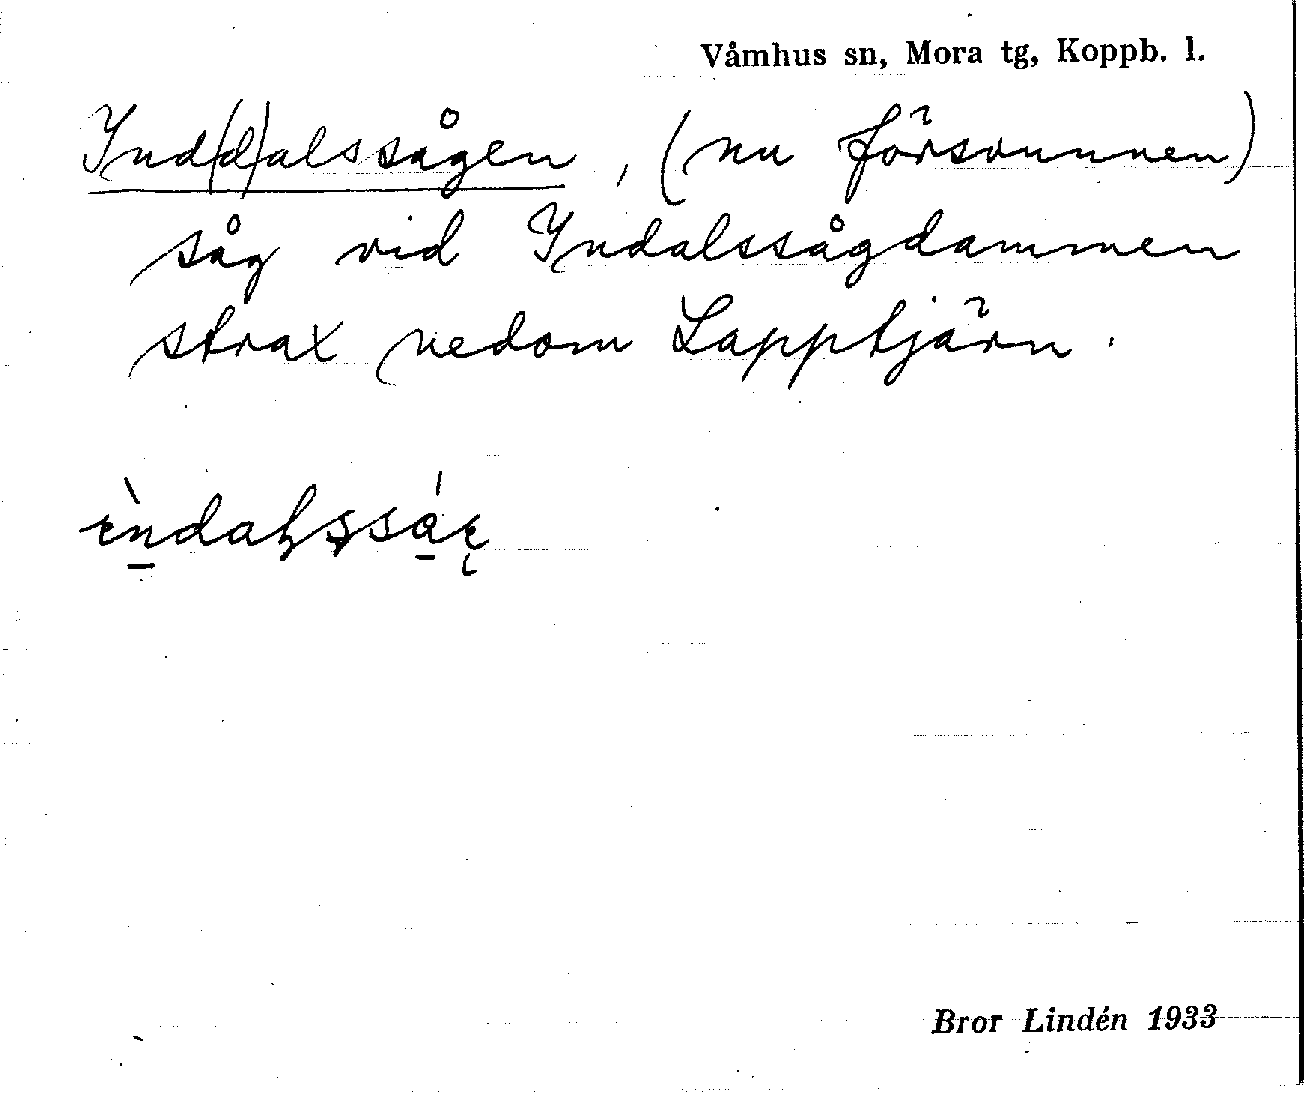 Våmhus sn, Mora tg, Koppb. l.
Ind(d)alssågen, (nu försvunnen)
såg vid Indalssågdammen
strax nedom Lapptjärn.
Bror Lindén 1933